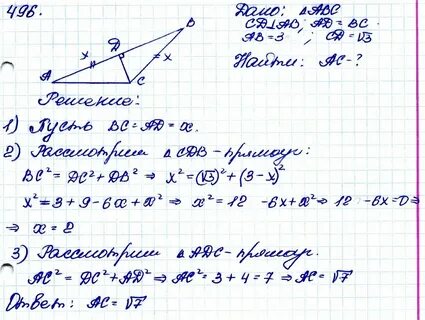 496.
Дано: △ABC
CD⊥AB; AD = BC
AB = 3 ; CD = √3
Найти: AC - ?
B
D
x
x
A
C
Решение:
1) Пусть BC = AD = x.
2) Рассмотрим △CDB - прямоуг:
BC² = DC² + DB² ⇒ x² = (√3)² + (3-x)²
x² = 3 + 9 - 6x + x² ⇒ x² = 12 - 6x + x² ⇒ 12 - 6x = 0 ⇒
⇒ x = 2
3) Рассмотрим △ADC - прямоуг.
AC² = DC² + AD² ⇒ AC² = 3 + 4 = 7 ⇒ AC = √7
Ответ: AC = √7